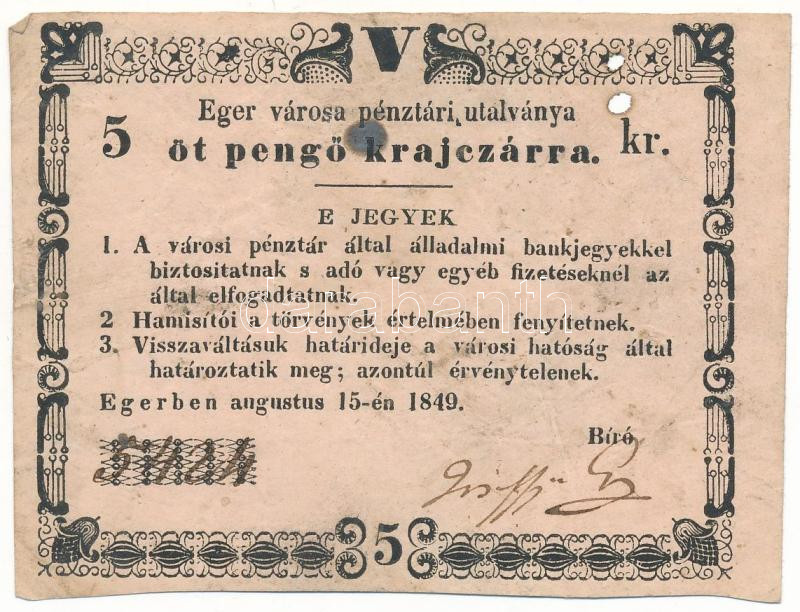 V
Eger városa pénztári utalványa
5 öt pengő krajczárra. kr.
E JEGYEK
1. A városi pénztár által álladalmi bankjegyekkel
biztositatnak s adó vagy egyéb fizetéseknél az
által elfogadtatnak.
2 Hamisítói a törvények értelmében fenyítetnek.
3. Visszaváltásuk határideje a városi hatóság által
határoztatik meg; azontúl érvénytelenek.
Egerben augustus 15-én 1849.
Bíró
5424
5
darabanth